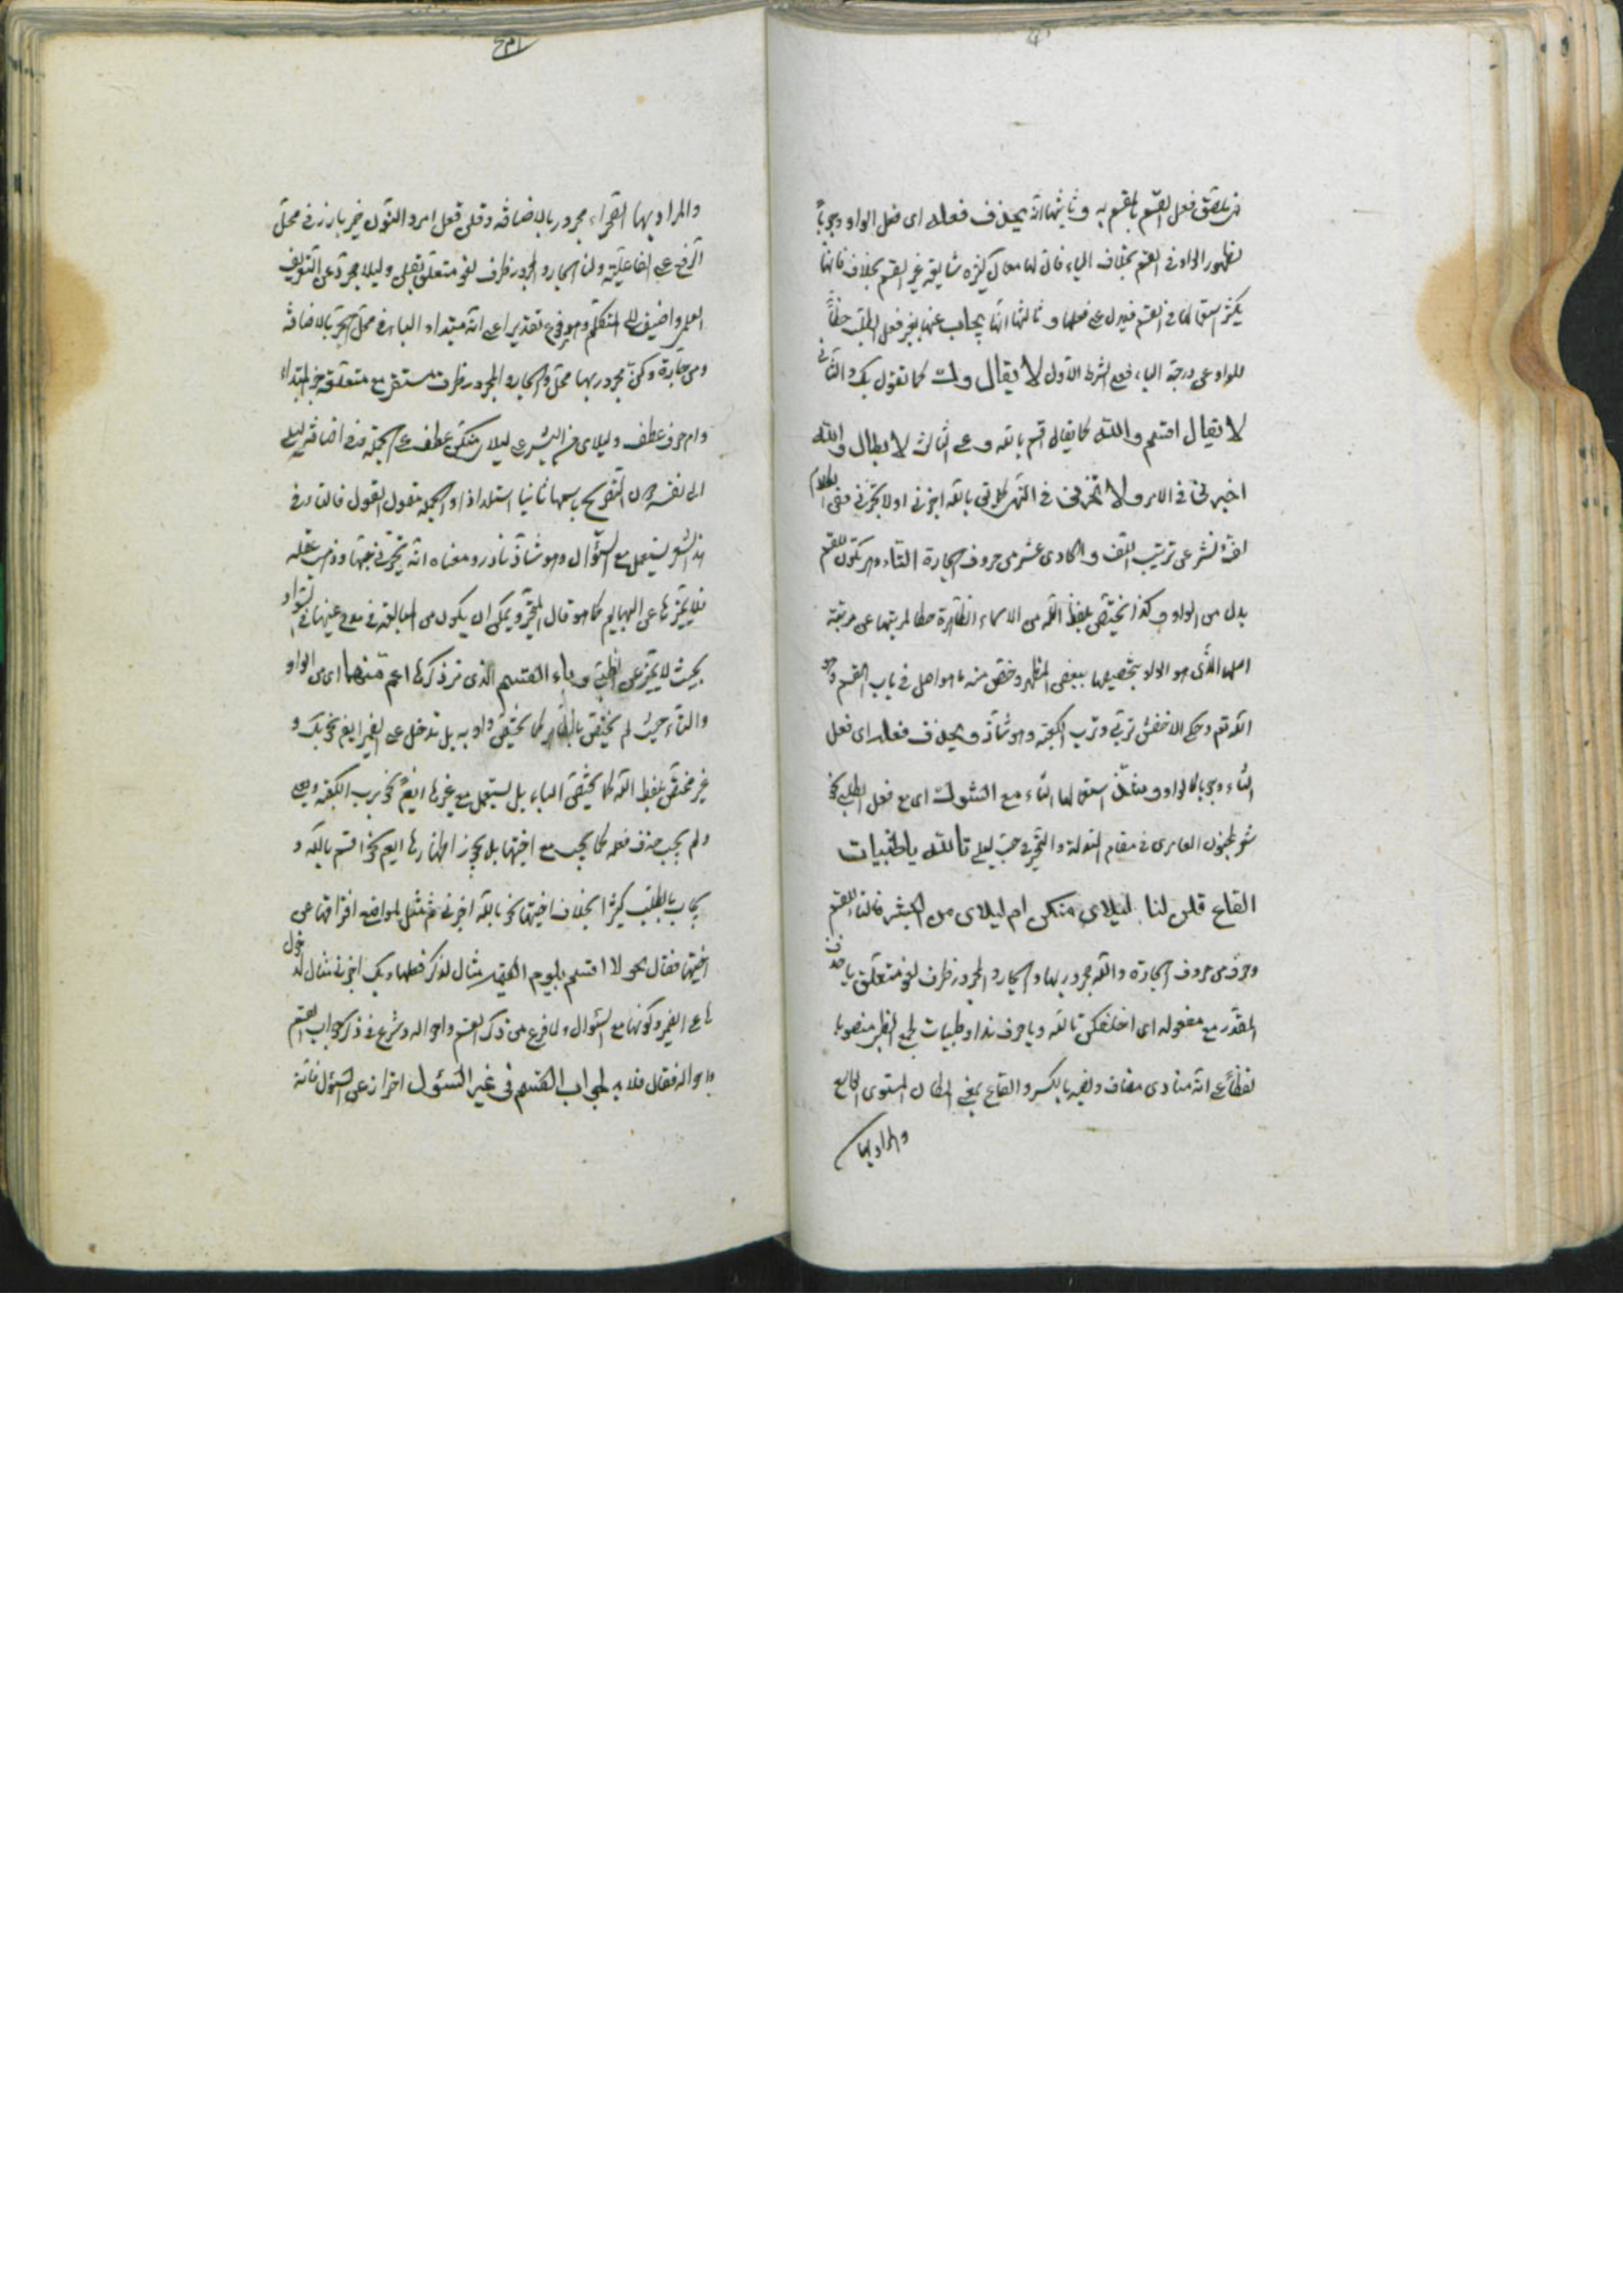 من يلصق فعل القسم بالمقسم به وثانيتها انه يحذف فعله اى فعل الواو وجوباً
لظهور الواو فى القسم بخلاف الباء فان لها معان كثيرة شايعة غير القسم بخلاف فانها
يكثر استعمالها فى القسم فيدل على فعلها وثالثها انها يجاب عنها بغير فعل الطلب حطاً
للواو عن درجة الباء فعلى الشرط الاول لا يقال وك كما تقول بك والثانى
لا يقال اقسم والله كما يقال اقسم بالله وعلى الثالث لا يقال والله
اخبرنى فى الامر ولا تخبرنى فى النهى كما تقول بالله اخبرنى او لا تخبرنى ففى الكلام
لف ونشر على ترتيب اللف والحادى عشر من حروف الجارة التاء وهى تكون للقسم
بدل من الواو وكذا يختص بلفظ الله من الاسماء الظاهرة حطا لمرتبتها عن مرتبة
اصلها الذى هو الواو بتخصيصها ببعض المظهر وخص منه ما هو اصل فى باب القسم وهو
الله تعم وحكى الاخفش تربى وترب الكعبة وهو شاذ ويحذف فعله اى فعل
التاء وجوبا كالواو استعمالها التاء مع السؤال اى مع فعل الطلب نحو
شعر لمجنون العامرى فى مقام التوله والتحير فى حب ليلى تالله يا ظبيات
القاع قلن لنا ليلاى منكن ام ليلاى من البشر فالتاء للقسم
وحرف من حروف الجارة والله مجرور بها والجار والمجرور ظرف لغو متعلق باحلف
المقدر مع مفعوله اى احلفكن تالله ويا حرف ندا وظبيات جمع الظبى منصوبا
لفظاً على انه منادى مضاف ونصبه بالكسر والقاع بمعنى المكان المستوى الواسع
والمراد بها
والمراد بها الصحراء مجرور بالاضافة وقلن فعل امر والنون ضمير بارز فى محل
الرفع على الفاعلية ولنا الجار والمجرور ظرف لغو متعلق بقلن وليلا مجرد عن التعريف
العلمى واضيف الى المتكلم ومرفوع تقديرا على انه مبتداء والياء فى محل الجر بالاضافة
ومن جارة وكن مجرور بها محلا والجار والمجرور ظرف مستقر مع متعلقه خبر المبتداء
وام حرف عطف وليلاى من البشر على ليلاى منكن عطف على الجملة ففى اضافة ليلى
الى نفسه دون التصريح باسمها ثانيا استلذاذا والجملة مقول القول فالتاء فى
هذا الشعر يستعمل مع السؤال وهو شاذ نادر ومعناه انه تحير فى حبها وذهب عقله
فلا يميزها عن البهايم كما هو قال المتحير ويمكن ان يكون من المبالغة فى مدح عينها فى السواد
بحيث لا يميز عن الظبى وباء القسم الذى مر ذكرها اعم منهما اى من الواو
والتاء حيث لم يختص بالظاهر كما يختص واو به بل تدخل على الضمير ايضا نحو بك و
غير مختص بلفظ الله كما يختص التاء بل يستعمل مع غيرها ايضا نحو برب الكعبة
ولم يجب حذف فعله كما يجب مع اختيها بل يجوز اظهارها ايضا نحو اقسم بالله و
يجاب بالطلب كثيرا بخلاف اختيها نحو بالله اخبرنى ثم مثل لمواضع افتراقها عن
اختيها فقال نحو لا اقسم بيوم القيمة مثال لذكر فعلها وبك اخبرنى مثال لدخول
ها على الضمير وكونها مع السؤال ولما فرغ من ذكر القسم واحواله وشرع فى ذكر جواب القسم
واحواله فقال فلابد لجواب القسم فى غير السؤال احتراز عن السؤال فانه